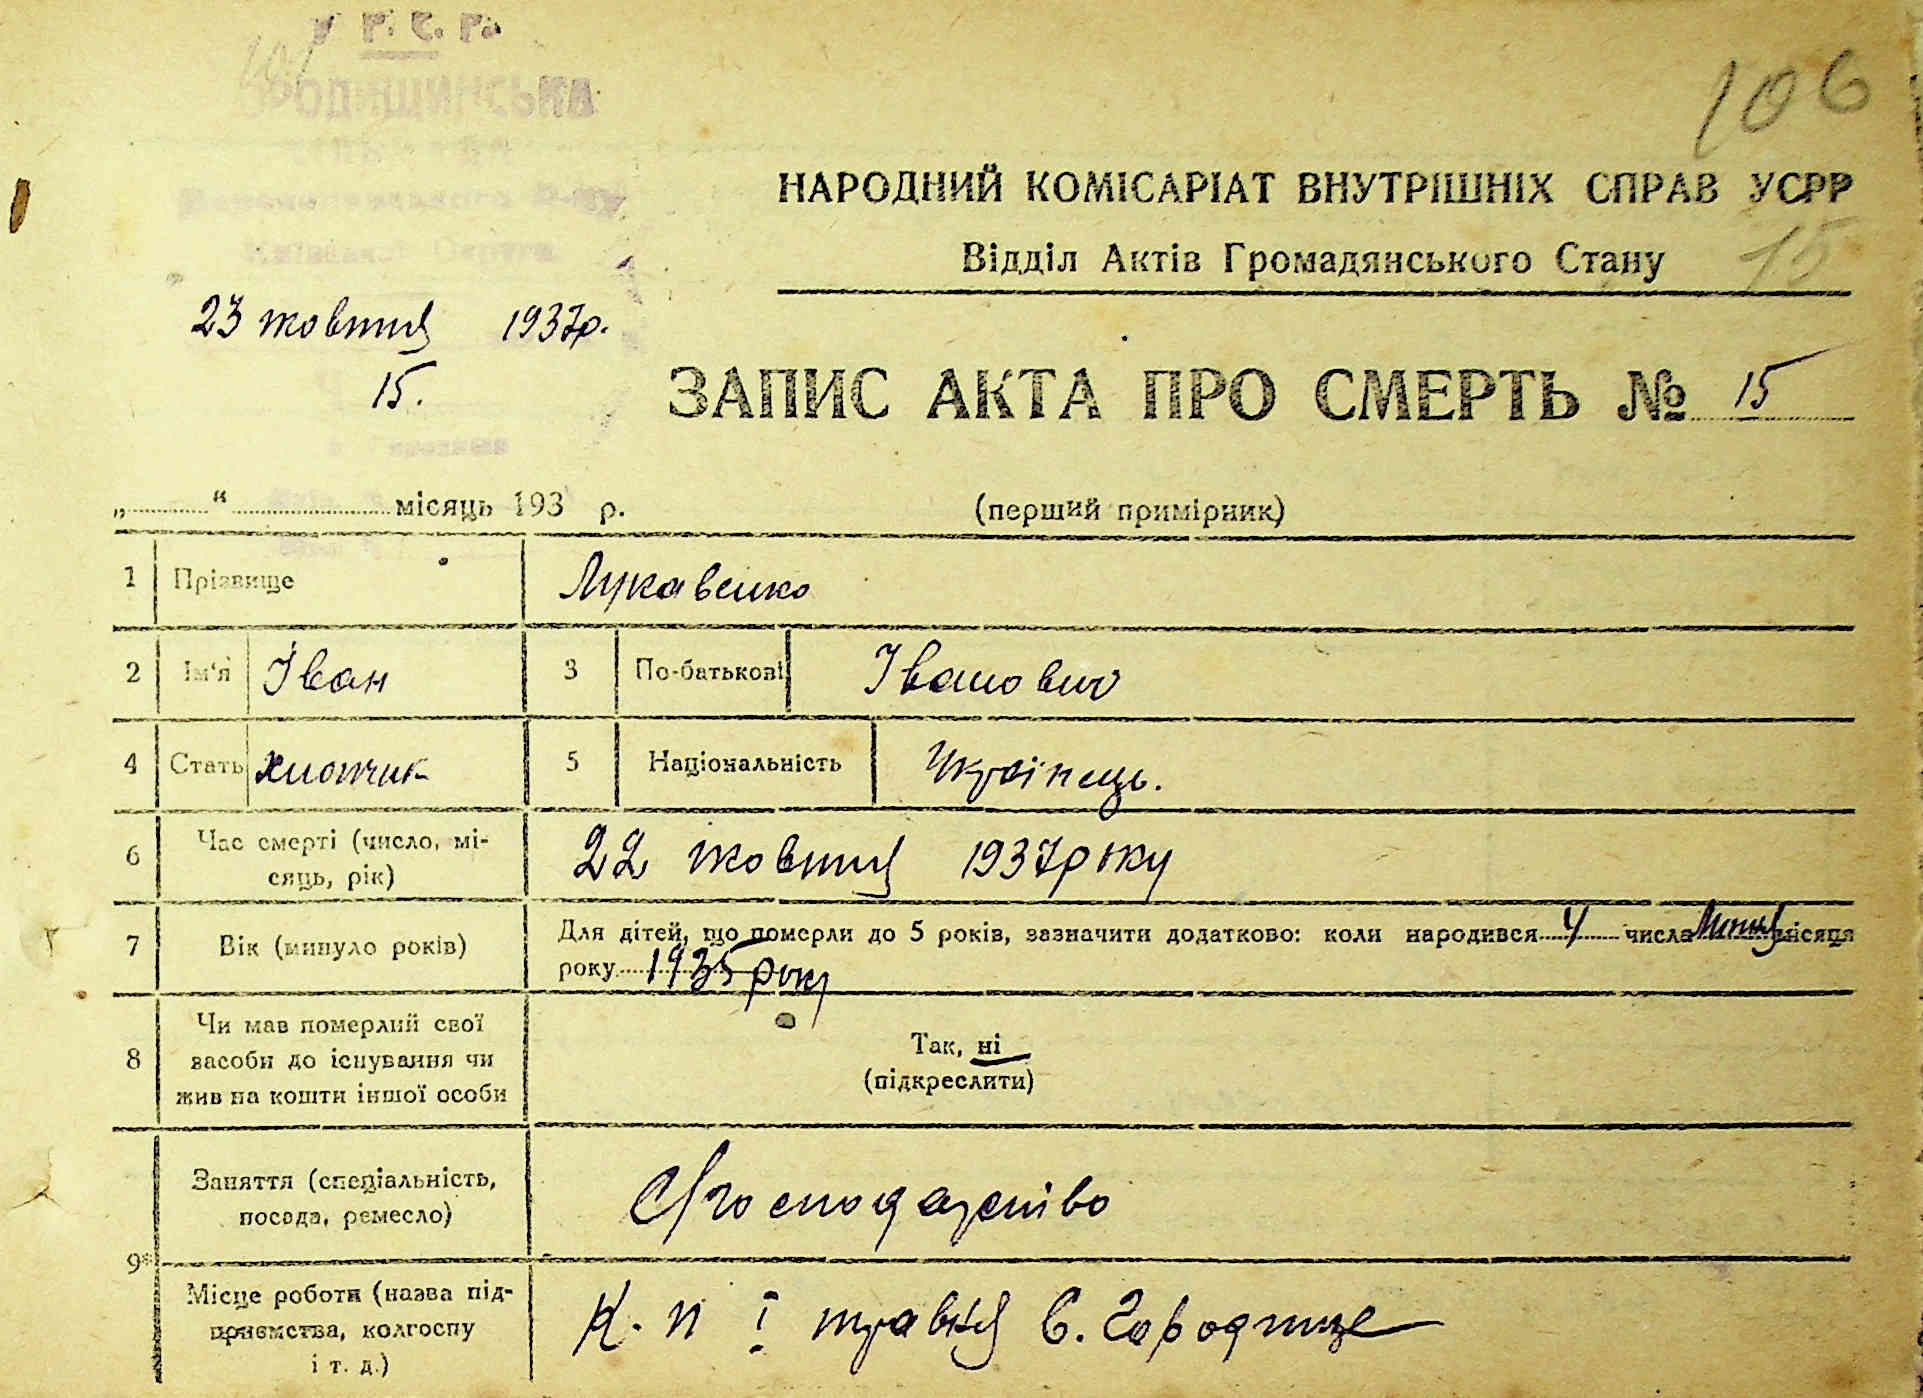 У. Р. С. Р.
101
ГОРОДИЩИНСЬКА
106
НАРОДНИЙ КОМІСАРІАТ ВНУТРІШНІХ СПРАВ УСРР
Відділ Актів Громадянського Стану
15
23 жовтня 1937р.
15.
ЗАПИС АКТА ПРО СМЕРТЬ № 15
„ “ місяць 193 р.
(перший примірник)
1 Прізвище Лукавенко
2 Ім'я Іван 3 По-батькові Іванович
4 Стать хлопчик 5 Національність Українець.
6 Час смерті (число, мі-
сяць, рік) 22 жовтня 1937року
7 Вік (минуло років) Для дітей, що померли до 5 років, зазначити додатково: коли народився 4 числа Липня місяця
року 1935 року
8 Чи мав померлий свої
засоби до існування чи
жив на кошти іншої особи
Так, ні
(підкреслити)
9* Заняття (спеціальність,
посада, ремесло) С/господарство
Місце роботи (назва під-
приємства, колгоспу
і т. д.)
К. п 1 травня С. Городище